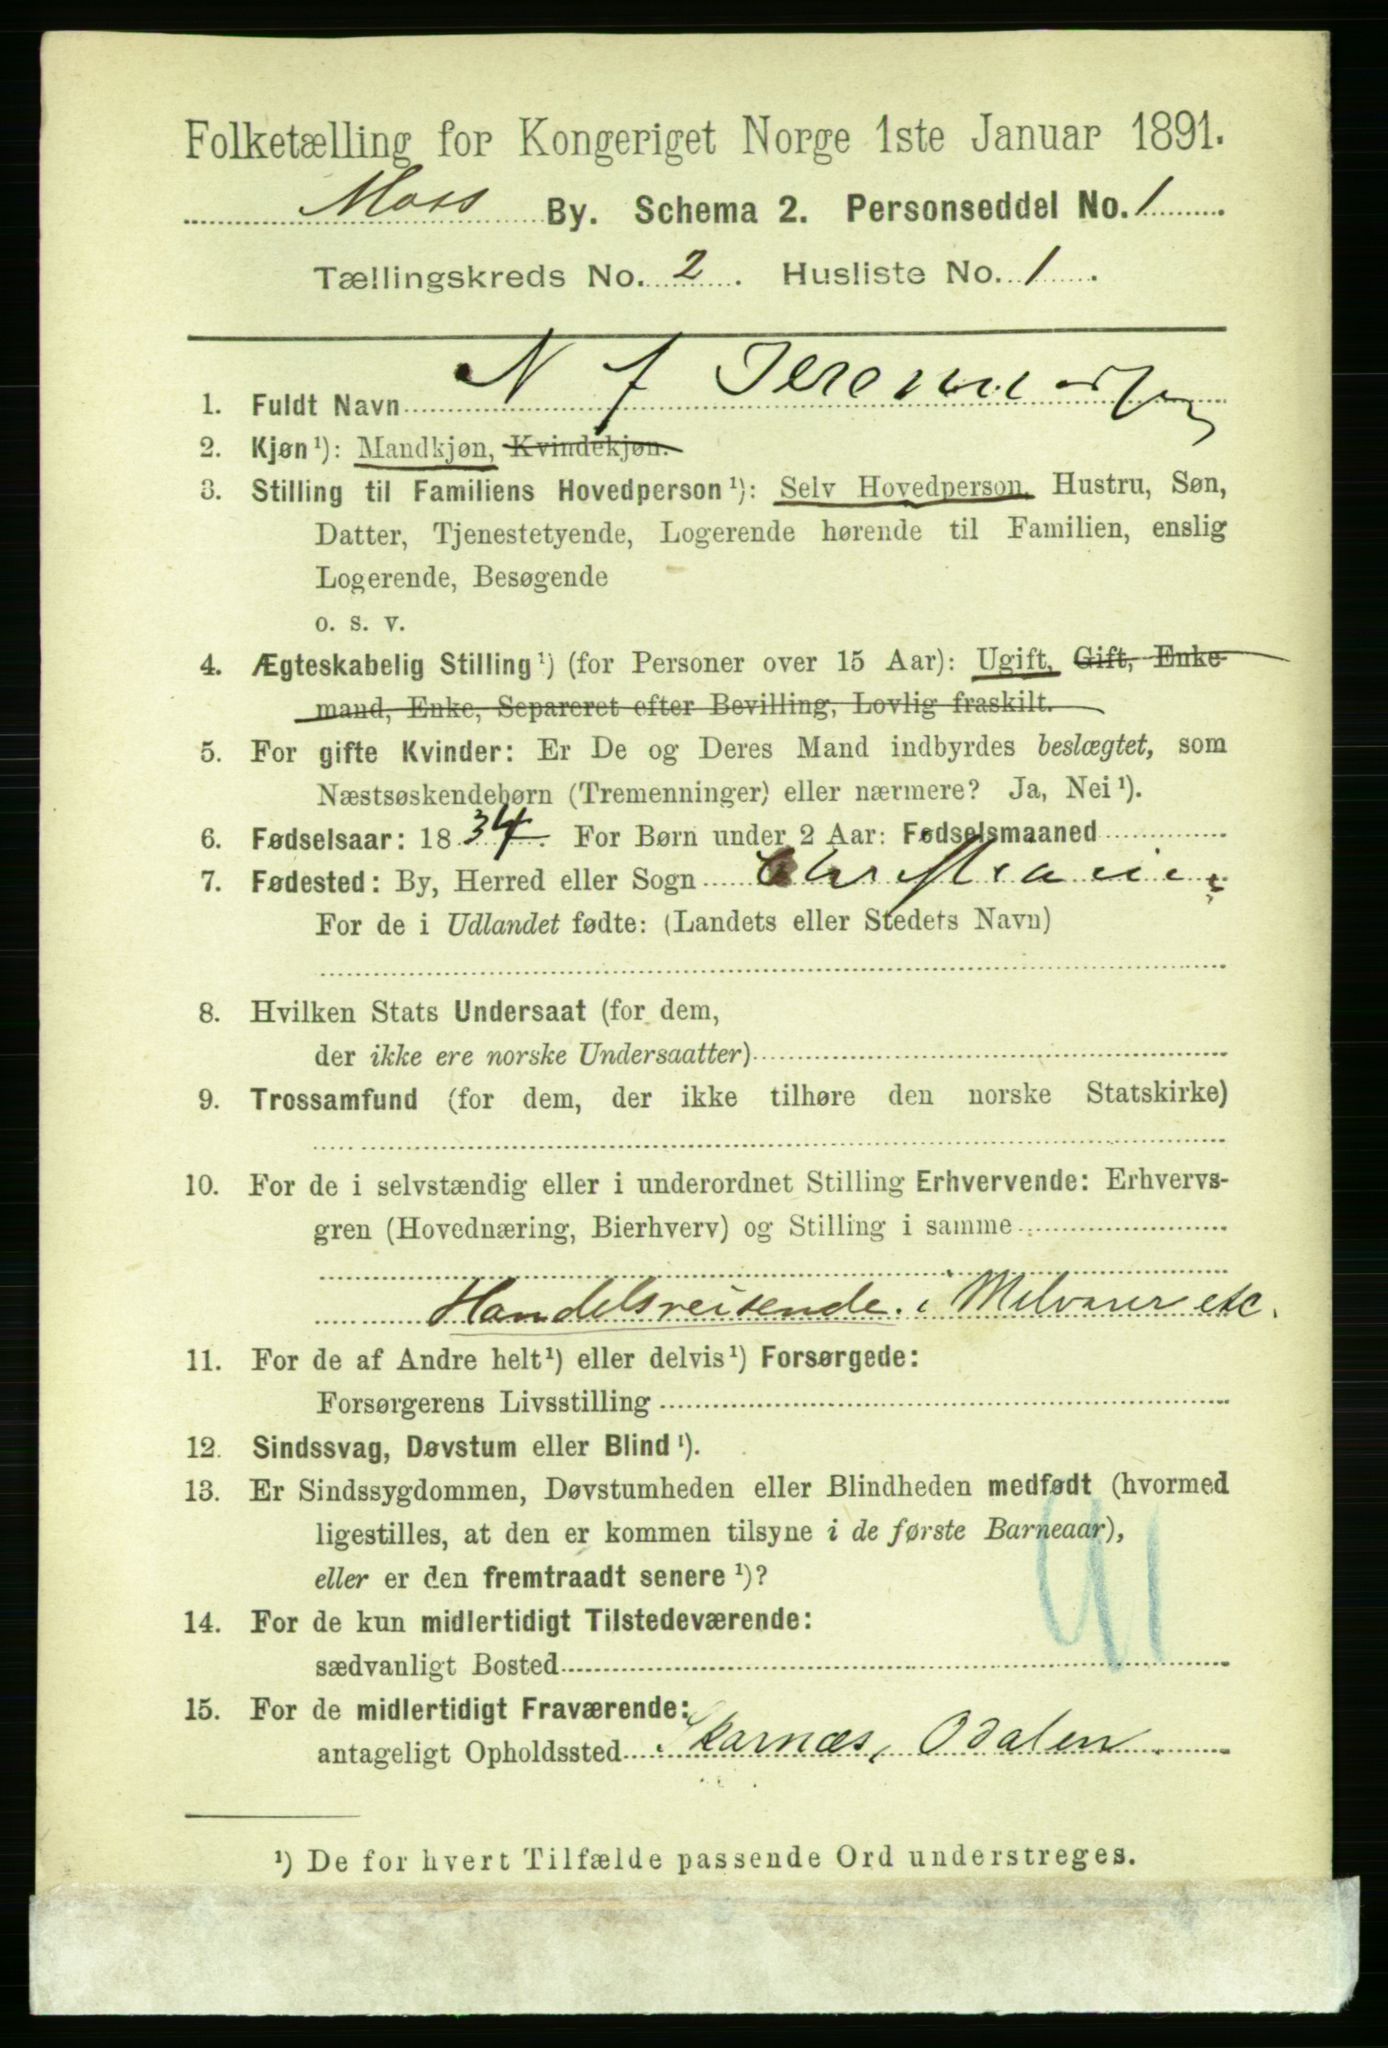 Folketælling for Kongeriget Norge 1ste Januar 1891.
Moss By. Schema 2. Personseddel No. 1
Tællingskreds No. 2. Husliste No. 1.
1. Fuldt Navn N J
2. Kjøn¹): Mandkjøn, Kvindekjøn.
3. Stilling til Familiens Hovedperson¹): Selv Hovedperson, Hustru, Søn,
Datter, Tjenestetyende, Logerende hørende til Familien, enslig
Logerende, Besøgende
o. s. v.
4. Ægteskabelig Stilling¹) (for Personer over 15 Aar): Ugift, Gift, Enke-
mand, Enke, Separeret efter Bevilling, Lovlig fraskilt.
5. For gifte Kvinder: Er De og Deres Mand indbyrdes beslægtet, som
Næstsøskendebørn (Tremenninger) eller nærmere? Ja, Nei¹).
6. Fødselsaar: 1834. For Børn under 2 Aar: Fødselsmaaned
7. Fødested: By, Herred eller Sogn Christiania
For de i Udlandet fødte: (Landets eller Stedets Navn)
8. Hvilken Stats Undersaat (for dem,
der ikke ere norske Undersaatter)
9. Trossamfund (for dem, der ikke tilhøre den norske Statskirke)
10. For de i selvstændig eller i underordnet Stilling Erhvervende: Erhvervs-
gren (Hovednæring, Bierhverv) og Stilling i samme
Handelsreisende. i Melvarer etc.
11. For de af Andre helt¹) eller delvis¹) Forsørgede:
Forsørgerens Livsstilling
12. Sindssvag, Døvstum eller Blind¹).
13. Er Sindssygdommen, Døvstumheden eller Blindheden medfødt (hvormed
ligestilles, at den er kommen tilsyne i de første Barneaar),
eller er den fremtraadt senere¹)?
91
14. For de kun midlertidigt Tilstedeværende:
sædvanligt Bosted
15. For de midlertidigt Fraværende:
antageligt Opholdssted Skarnæs, Odalen
¹) De for hvert Tilfælde passende Ord understreges.